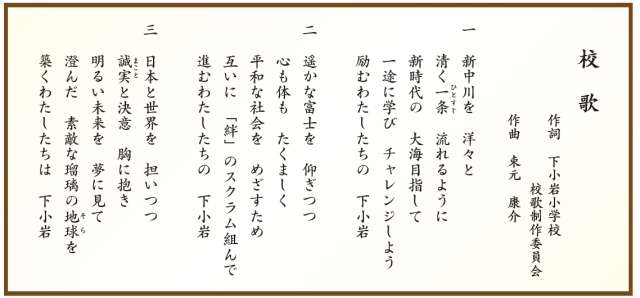 校歌
作詞 下小岩小学校
校歌制作委員会
作曲 東元 康介
一 新中川を 洋々と
清く一条 流れるように
ひとすぐ
新時代の 大海目指して
一途に学び チャレンジしよう
励むわたしたちの 下小岩
二 遥かな富士を 仰ぎつつ
心も体も たくましく
平和な社会を めざすため
互いに 「絆」のスクラム組んで
進むわたしたちの 下小岩
三 日本と世界を 担いつつ
誠実と決意 胸に抱き
まこと
明るい未来を 夢に見て
澄んだ 素敵な瑠璃の地球を
そら
築くわたしたちは 下小岩